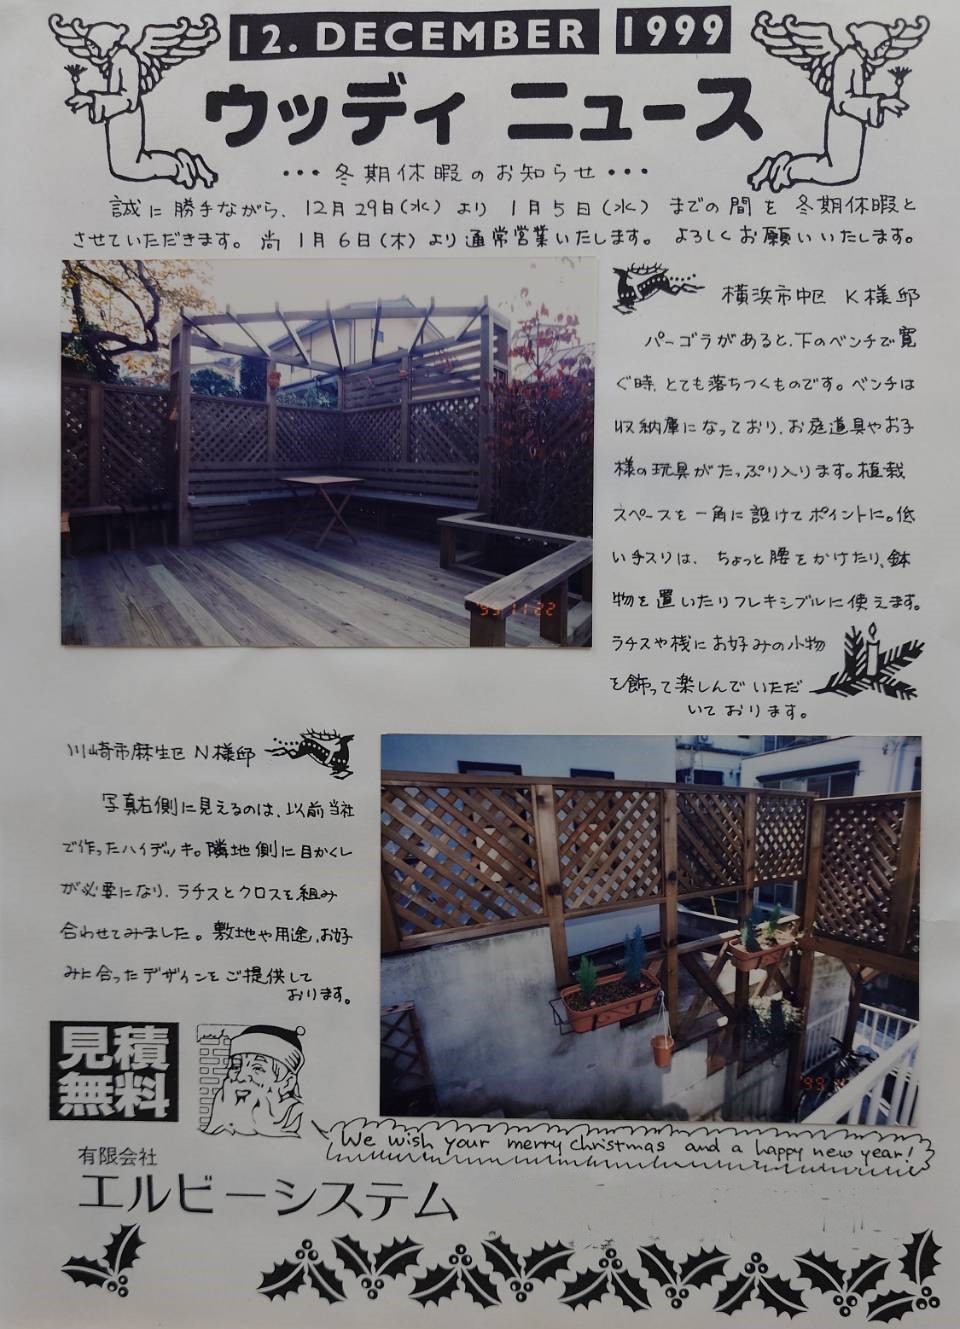 12. DECEMBER 1999
ウッディ ニュース
・・・冬期休暇のお知らせ・・・
誠に勝手ながら、12月29日(水)より 1月5日(水) までの間を 冬期休暇と
させていただきます。尚 1月6日(木)より通常営業いたします。 よろしくお願いいたします。
横浜市中区 K様邸
パーゴラがあると、下のベンチで寛
ぐ時、とても落ちつくものです。ベンチは
収納庫になっており、お庭道具やお子
様の玩具がたっぷり入ります。植栽
スペースを一角に設けてポイントに。低
い手スリは、ちょっと腰をかけたり、鉢
物を置いたりフレキシブルに使えます。
ラチスや桟にお好みの小物
を飾って楽しんでいただ
いております。
'99 11 22
川崎市麻生区 N様邸
写真右側に見えるのは、以前当社
で作ったハイデッキ。隣地側に目かくし
が必要になり、ラチスとクロスを組み
合わせてみました。敷地や用途、お好
みに合ったデザインをご提供して
おります。
'99
見積
無料
We wish your merry christmas and a happy new year!
有限会社
エルビーシステム